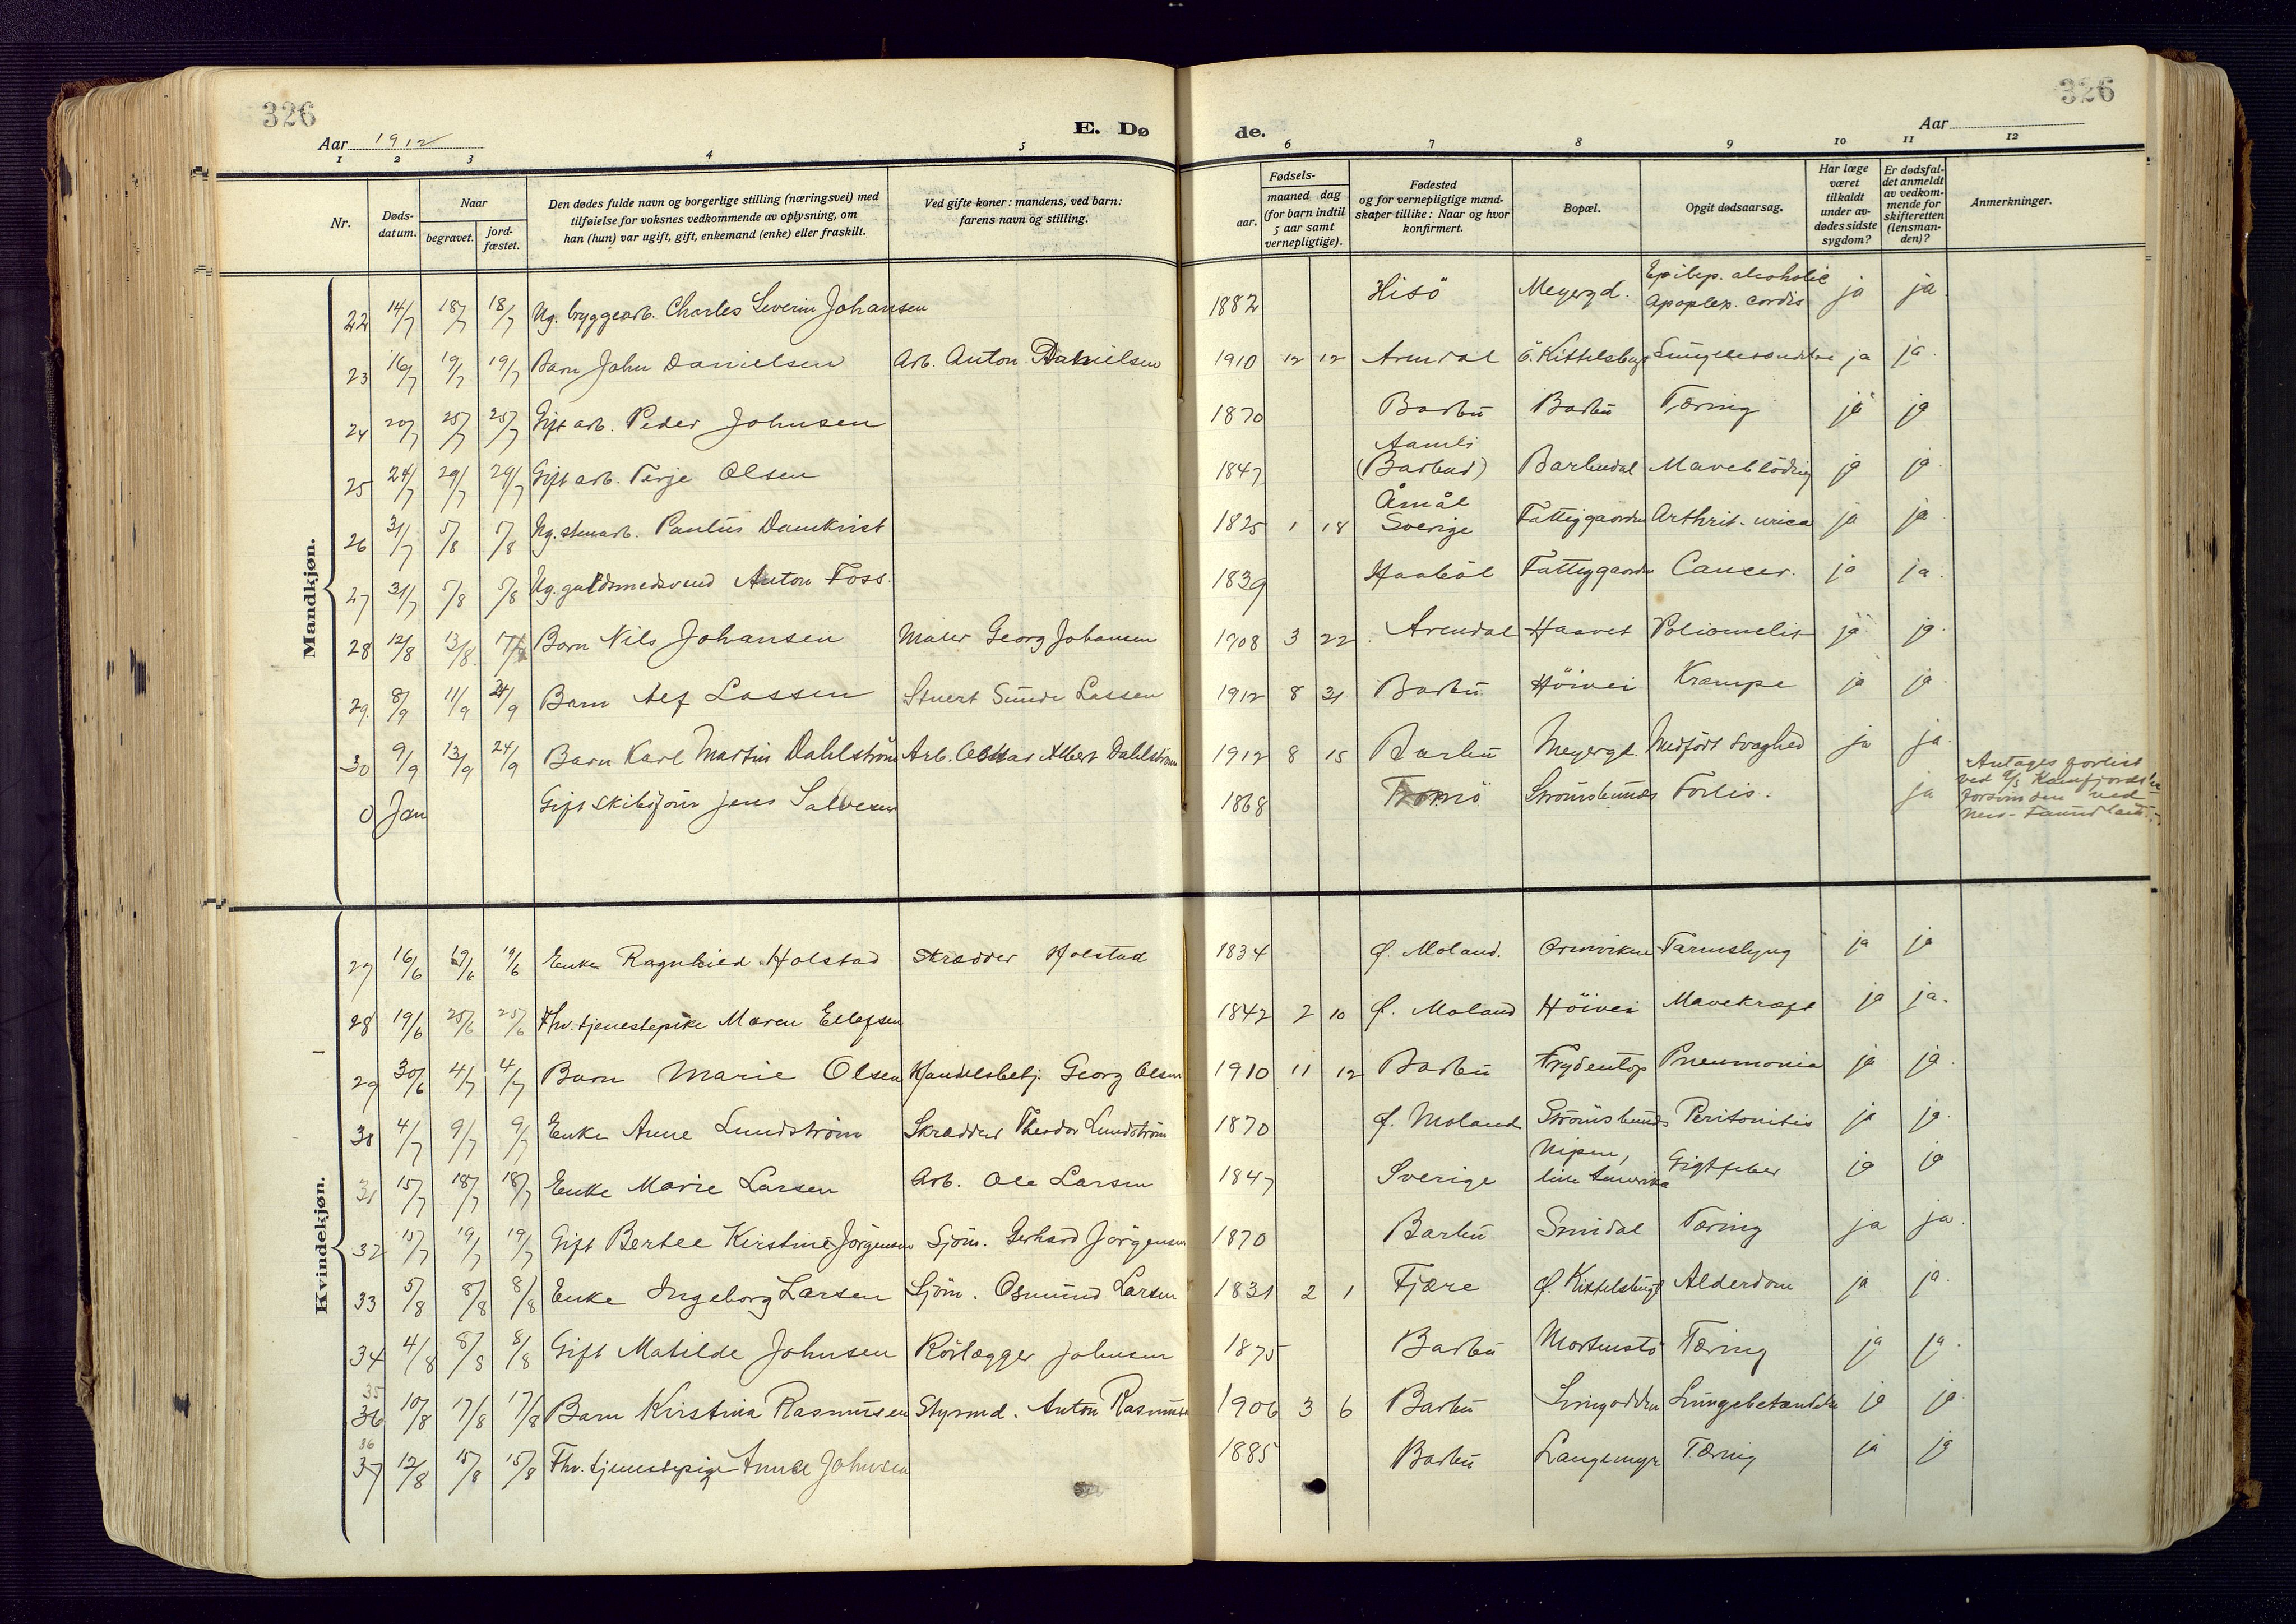 326
326
Aar 1912
E. Dø
de.
Aar
1 2 3 4 5 6 7 8 9 10 11 12
Nr.
Døds-
datum.
Naar
begravet.
jord-
fæstet.
Den dødes fulde navn og borgerlige stilling (næringsvei) med
tilføielse for voksnes vedkommende av oplysning, om
han (hun) var ugift, gift, enkemand (enke) eller fraskilt.
Ved gifte koner: mandens, ved barn:
farens navn og stilling.
Fødsels-
aar.
maaned dag
(for barn indtil
5 aar samt
vernepligtige).
Fødested
og for vernepligtige mand-
skaper tillike: Naar og hvor
konfirmert.
Bopæl.
Opgit dødsaarsag.
Har læge
været
tilkaldt
under av-
dødes sidste
sygdom?
Er dødsfal-
det anmeldt
av vedkom-
mende for
skifteretten
(lensman-
den)?
Anmerkninger.
Mandkjøn.
22 14/7 18/7 18/7 Ug. bryggearb. Charles Severin Johansen 1882 Hisö Meyergd. Epilep. alcoholic apoplex. cordis ja ja.
23 16/7 19/7 19/7 Barn John Danielsen Arb. Anton Danielsen 1910 12 12 Arendal Ö. Kittelsbugt ja ja.
24 20/7 25/7 25/7 Gift arb. Peder Johnsen 1870 Barbu Barbu Tæring ja ja
25 24/7 29/7 29/7 Gift arb. Terje Olsen 1847 Aamli (Barbud) Barbudal Maveblödnig ja ja.
26 31/7 5/8 5/8 Ug. stenarb. Paulus Damkvist 1825 1 18 Åmål Sverige Fattiggaarden Arthrit. urica ja ja
27 31/7 5/8 5/8 Ug. guldsmedsvend Anton Foss. 1839 Haaböl Fattiggaarden Cancer. ja ja.
28 12/8 13/8 17/8 Barn Nils Johansen Maler Georg Johansen 1908 3 22 Arendal Haavet Poliomelit ja ja.
29. 8/9 11/9 24/9 Barn Alf Lassen Stuert Sunde Lassen 1912 8 31 Barbu Höivei Krampe ja ja.
30 9/9 13/9 24/9 Barn Karl Martin Dahlström Arb. Albert Dahlström 1912 8 15 Barbu Meyergd. Medfödt svaghed ja ja.
0 Jan Gift skibstjöm Jens Salvesen 1868 Tromö Strömsbunds Forlis. ja Antages forlist
ved Kamfjords
forsvinden ved
New-Faundland.
Kvindekjøn.
27 16/6 19/6 19/6 Enke Ragnhild Holstad Skrædder Holstad 1834 Ø. Moland. Tarmslyng ja ja
28 19/6 25/6 25/6 Fhv. tjenestepike Maren Ellefsen 1842 2 10 Ø. Moland Höivei Mavekræft ja ja.
29 30/6 4/7 4/7 Barn Marie Olsen Handelsbetj. Georg Olsen 1910 11 12 Barbu Frydentop Pneumonia ja ja.
30 4/7 9/7 9/7 Enke Anne Lundström Skrædder Theodor Lundström 1870 Ø. Moland Strömsbunds Peritonitis ja ja.
31 15/7 18/7 18/7 Enke Marie Larsen Arb. Ole Larsen 1847 Sverige Nipen, lille Amerika Gigtfeber ja ja
32 15/7 19/7 19/7 Gift Bertee Kirstine Jörgensen Sjöm. Gerhard Jörgensen 1870 Barbu Smidal Tæring ja ja.
33 5/8 8/8 8/8 Enke Ingeborg Larsen Sjöm. Osmund Larsen 1831 2 1 Fjære Ø. Kittelsbugt Alderdom ja ja.
34 4/8 8/8 8/8 Gift Matilde Johnsen Rörlægger Johnsen 1875 Barbu Mortenstö Tæring ja ja.
35 36 10/8 17/8 17/8 Barn Kirstina Rasmussen Styrmd. Anton Rasmussen 1906 3 6 Barbu Lungebetændelse ja ja.
36 37 12/8 15/8 15/8 Fhv. tjenestepige Anna Johnsen 1885 Barbu Langemyr Tæring ja ja